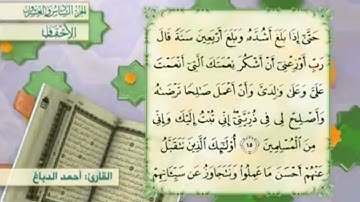 الجزء السادس والعشرون
الأحقاف
حَتَّىٰ إِذَا بَلَغَ أَشُدَّهُ وَبَلَغَ أَرْبَعِينَ سَنَةً قَالَ
رَبِّ أَوْزِعْنِي أَنْ أَشْكُرَ نِعْمَتَكَ الَّتِي أَنْعَمْتَ
عَلَيَّ وَعَلَىٰ وَالِدَيَّ وَأَنْ أَعْمَلَ صَالِحًا تَرْضَاهُ
وَأَصْلِحْ لِي فِي ذُرِّيَّتِي إِنِّي تُبْتُ إِلَيْكَ وَإِنِّي
مِنَ الْمُسْلِمِينَ ١٥ أُولَٰئِكَ الَّذِينَ نَتَقَبَّلُ
عَنْهُمْ أَحْسَنَ مَا عَمِلُوا وَنَتَجَاوَزُ عَنْ سَيِّئَاتِهِمْ
القارئ: أحمد الدباغ